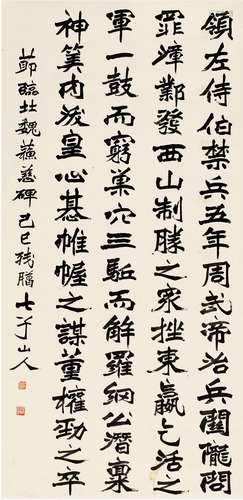 領左侍伯禁兵五年周武帝治兵關隴問
罪漳鄴發西山制勝之眾挫東嬴乞活之
軍一鼓而窮巢穴三駈而解羅網公潛稟
神筭內發皇心基帷幄之謀董權勁之卒
節臨北魏蘇慈碑 己巳殘臘 七山人